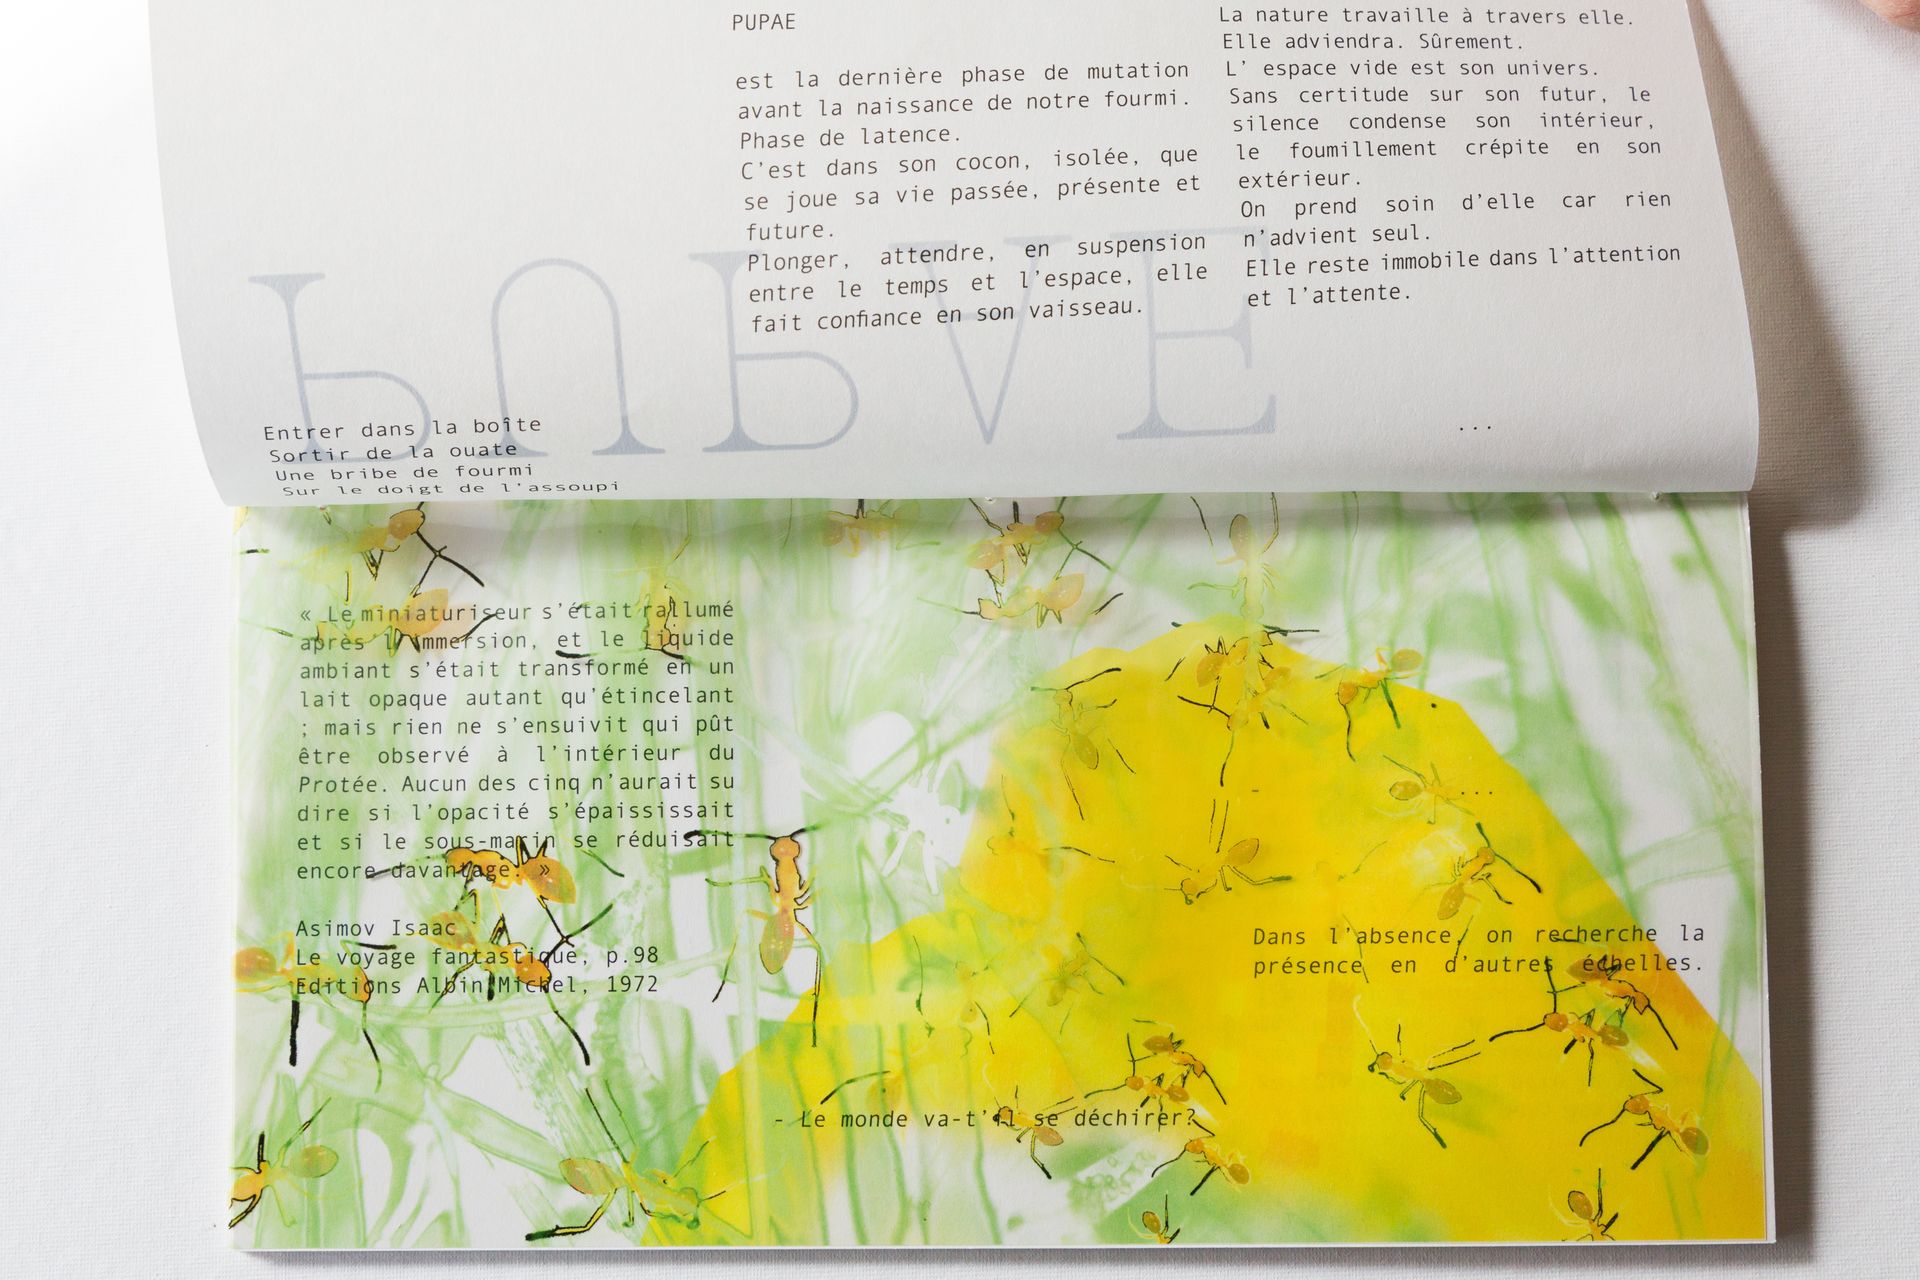 PUPAE
est la dernière phase de mutation
avant la naissance de notre fourmi.
Phase de latence.
C'est dans son cocon, isolée, que
se joue sa vie passée, présente et
future.
Plonger, attendre, en suspension
entre le temps et l'espace, elle
fait confiance en son vaisseau.
La nature travaille à travers elle.
Elle adviendra. Sûrement.
L' espace vide est son univers.
Sans certitude sur son futur, le
silence condense son intérieur,
le foumillement crépite en son
extérieur.
On prend soin d'elle car rien
n'advient seul.
Elle reste immobile dans l'attention
et l'attente.
...
PUPAE
Entrer dans la boîte
Sortir de la ouate
Une bribe de fourmi
Sur le doigt de l'assoupi
« Le miniaturiseur s'était rallumé
après l'immersion, et le liquide
ambiant s'était transformé en un
lait opaque autant qu'étincelant
; mais rien ne s'ensuivit qui pût
être observé à l'intérieur du
Protée. Aucun des cinq n'aurait su
dire si l'opacité s'épaississait
et si le sous-marin se réduisait
encore davantage. »
Asimov Isaac
Le voyage fantastique, p.98
Editions Albin Michel, 1972
- ...
Dans l'absence, on recherche la
présence en d'autres échelles.
- Le monde va-t'il se déchirer?